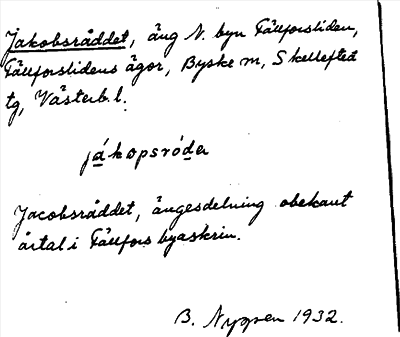 Jakobsråddet, äng N. byn Fällforsliden,
Fällforslidens ägor, Byske m, Skellefteå
tg, Västerb. l.
jákopsróda
Jacobsråddet, ängesdelning obekant
årtal i Fällfors byaskrin.
B. Nygren 1932.